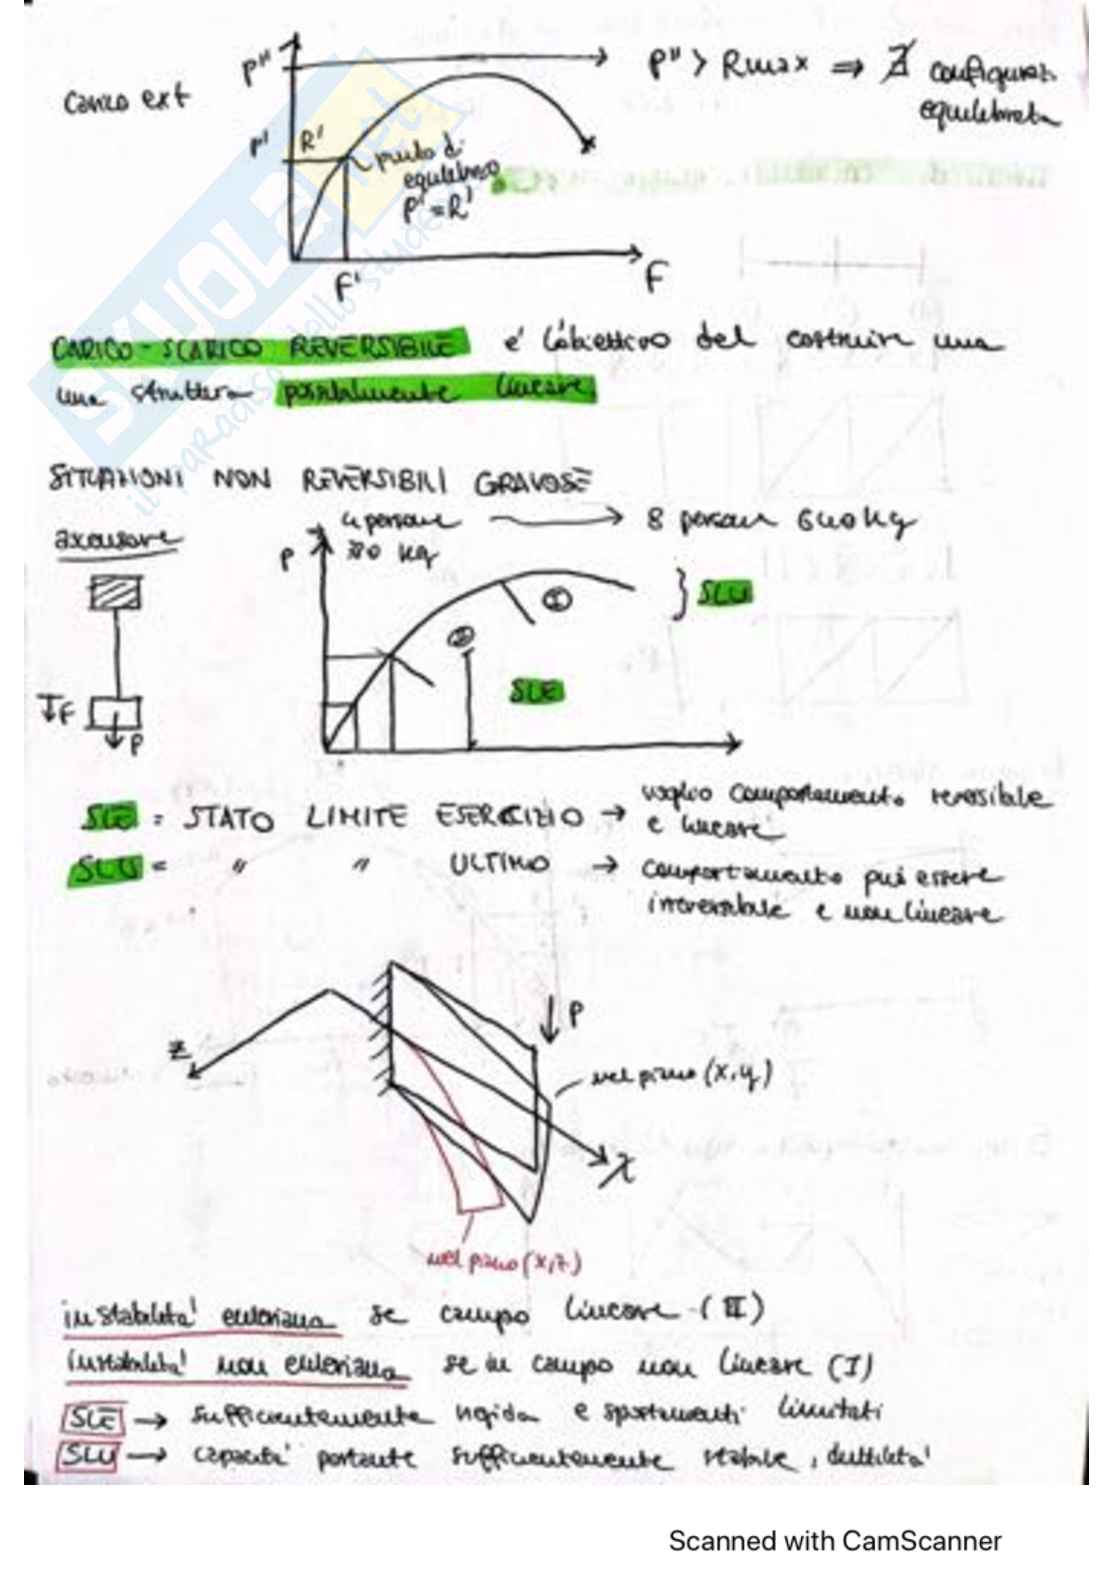 P" > Rmax ⇒ ∄ configuraz.
equilibrata
Carico ext
P"
P'
R'
punto di
equilibrio
P' = R'
F'
F
CARICO-SCARICO REVERSIBILE è l'obiettivo del costruire una
una struttura possibilmente lineare
SITUAZIONI NON REVERSIBILI GRAVOSE
ascensore
4 persone → 8 persone 640 kg
kg
P
I
II
SLU
SLE
F
P
SLE = STATO LIMITE ESERCIZIO → voglio comportamento reversibile
e lineare
SLU = " " ULTIMO → comportamento può essere
irreversibile e non lineare
P
z
nel piano (x,y)
x
nel piano (x,z)
instabilità euleriana se campo lineare (II)
instabilità non euleriana se in campo non lineare (I)
SLE → sufficientemente rigida e spostamenti limitati
SLU → capacità portante sufficientemente stabile, duttilità
SKUOLA.net
il paradiso dello studente
Scanned with CamScanner